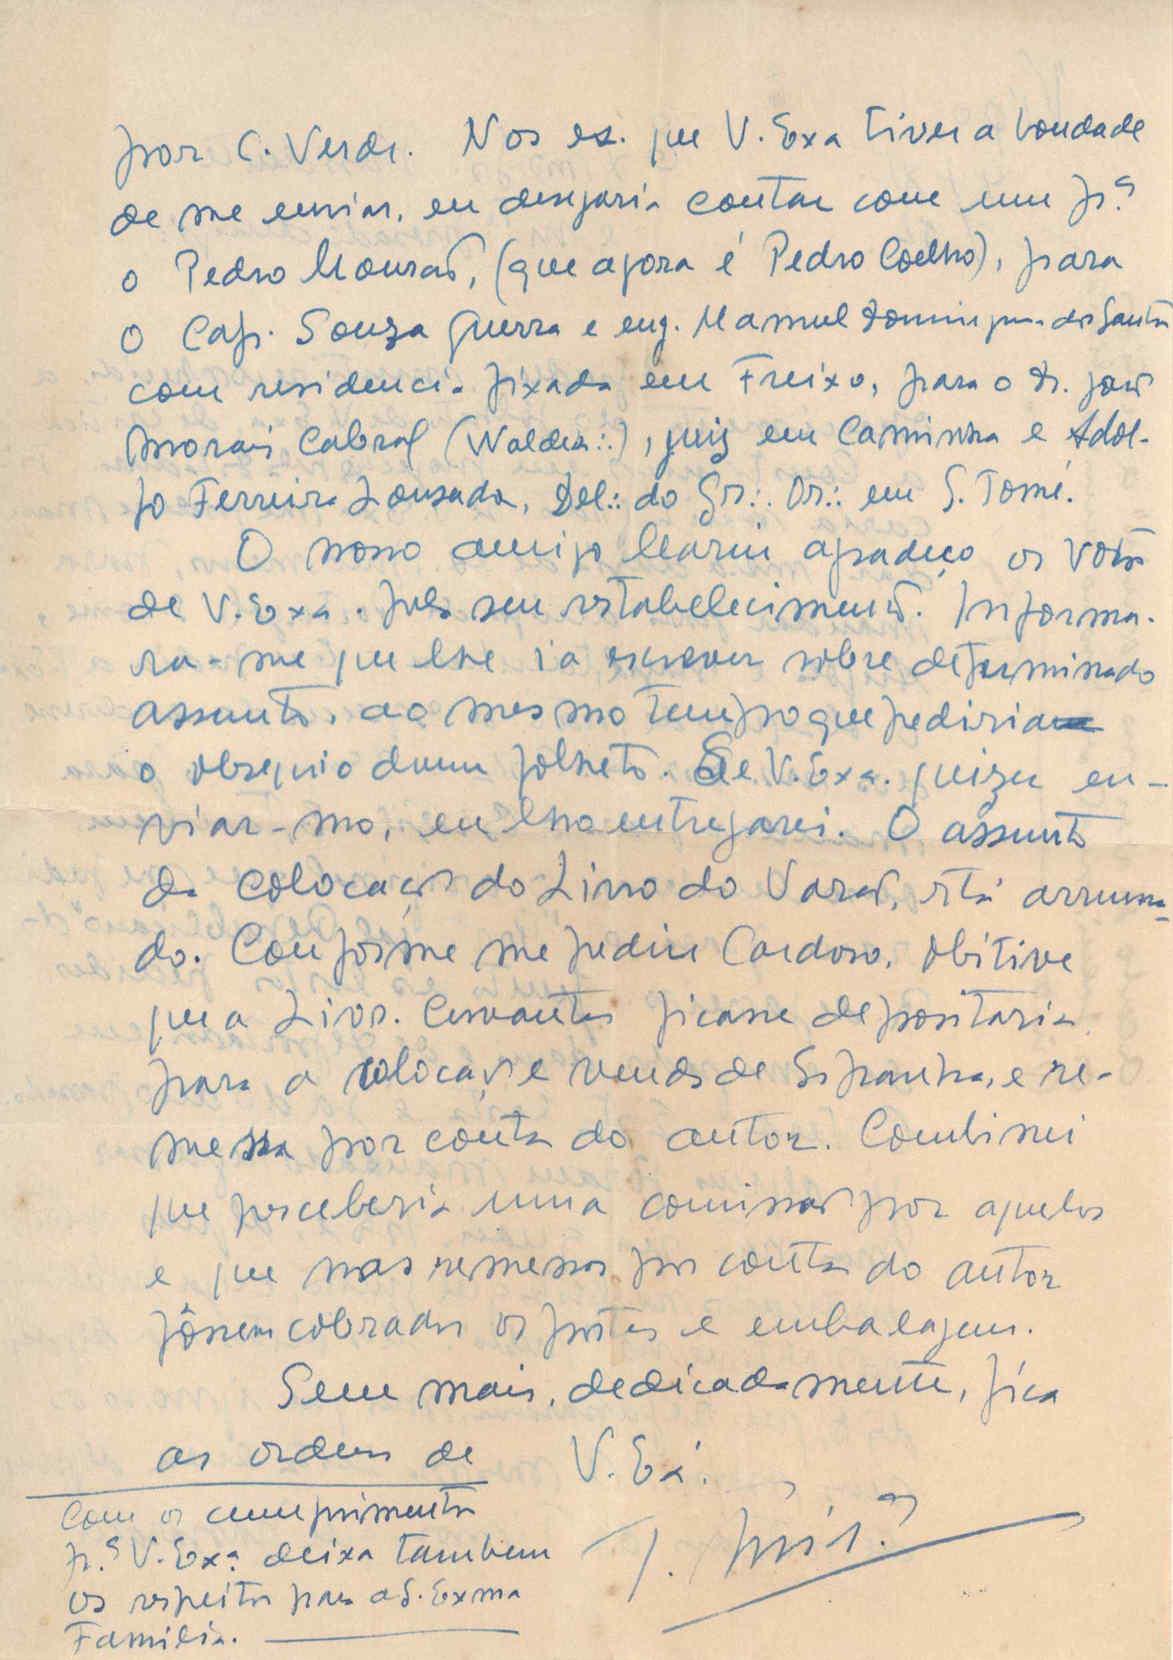 por C. Verde. Nos ex. que V. Exa tiver a bondade
de me enviar, eu desejaria contar com um pª
o Pedro Mourão, (que agora é Pedro Coelho), para
o Cap. Souza Guerra e eng. Manuel Domingues dos Santos
com residencia fixada em Freixo, para o dr. José
Morais Cabral (Waldeck∴), juiz em Caminha e Adol-
fo Ferreira Lousada, Del∴ do Gr∴ Or∴ em S. Tomé.
O nosso amigo agradeço os votos
de V. Exa. pelo seu restabelecimento. Informa-
ra-me que lhe ia escrever sobre determinado
assunto, ao mesmo tempo que pediria
o obsequio dum folheto. Se V. Exa. quizer en-
viar-mo, eu lho entregarei. O assunto
da colocação do Livro do Varão, está arruma-
do. Conforme me pediu Cardoso, obtive
que a Livr. Cervantes ficasse depositaria
para a colocação e venda de Espanha, e re-
messa por conta do autor. Combinei
que perceberia uma comissão por aqueles
e que nas remessas por conta do autor
fôssem cobrados os portes e embalagem.
Sem mais, dedicadamente, fica
as ordens de V. Exª.
Com os cumprimentos
pª V. Exª deixa tambem
os respeitos para a S. Exma
Familia.